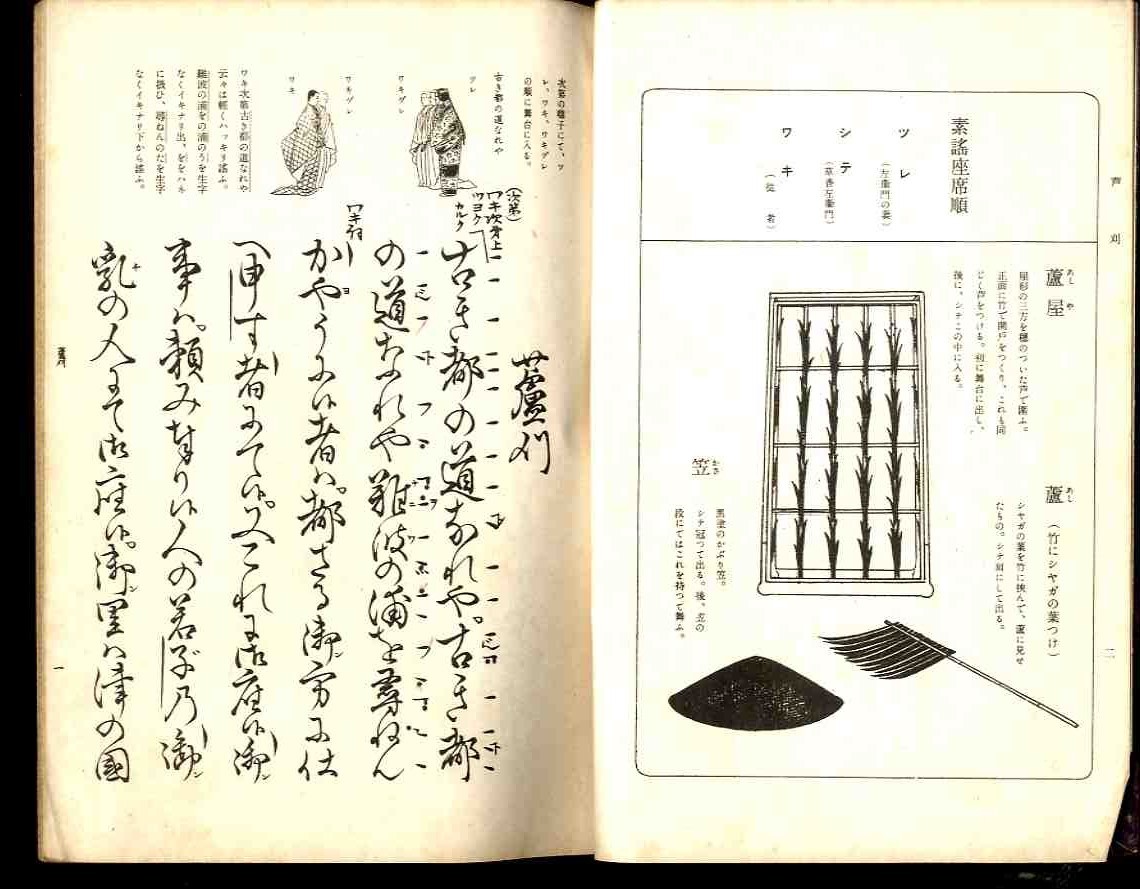 芦刈
素謡座席順
ツレ
(左衛門の妻)
シテ
(草香左衛門)
ワキ
(従者)
蘆屋
あしや
屋形の三方を穂のついた芦で囲ふ。
正面に竹で開戸をつくり、これも同
じく芦をつける。初に舞台に出し、
後に、シテこの中に入る。
蘆
あし
(竹にシヤガの葉つけ)
シヤガの葉を竹に挾んで、蘆に見せ
たもの。シテ肩にして出る。
笠
かさ
黒塗のかぶり笠。
シテ冠つて出る。後、立の
段にてはこれを持つて舞ふ。
二
次第の囃子にて、ツ
レ、ワキ、ワキヅレ
の順に舞台に入る。
古き都の道なれや
ツレ
ワキヅレ
ワキヅレ
ワキ
ワキ次第古き都の道なれや
云々は軽くハッキリ謡ふ。
難波の浦をの浦のうを生字
なくイキナリ出、ををハネ
に扱ひ、尋ねんのだを生字
なくイキナリ下から謡ふ。
蘆刈
(次第)
ワキ次第上
ツヨク
カルク
古き都の道なれや。古き都
の道なれや難波の浦を尋ねん
かやうに候者ハ。都さる御方に仕
へ申す者にて候。又これに御座候御
事ハ。頼み奉り候人の若子乃御
乳の人にて御座候。御里ハ津の國
一